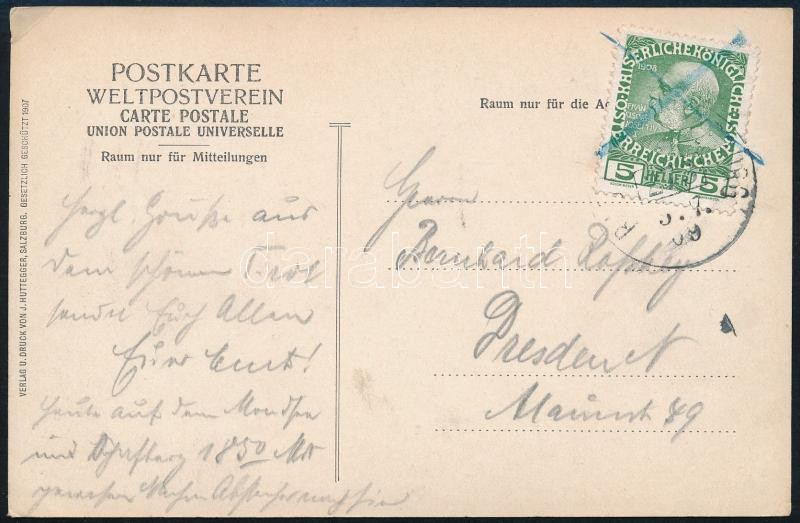 POSTKARTE
WELTPOSTVEREIN
CARTE POSTALE
UNION POSTALE UNIVERSELLE
Raum nur für Mitteilungen
Raum nur für die
VERLAG U. DRUCK VON J. HUTTEGGER, SALZBURG. GESETZLICH GESCHÜTZT 1907
KAISERLICHE KÖNIGLICHE ÖSTERREICHISCHE
1908
5 HELLER 5
09
Herzl. Grüße aus
dem schönen Tirol
sendet Euch Allen
Euer Ernst!
Heute auf dem Mondsee
und Schafberg 1850 Mtr
gewesen
Herrn
Bernhard
Dresden N
Alaunstr 49
darabanth